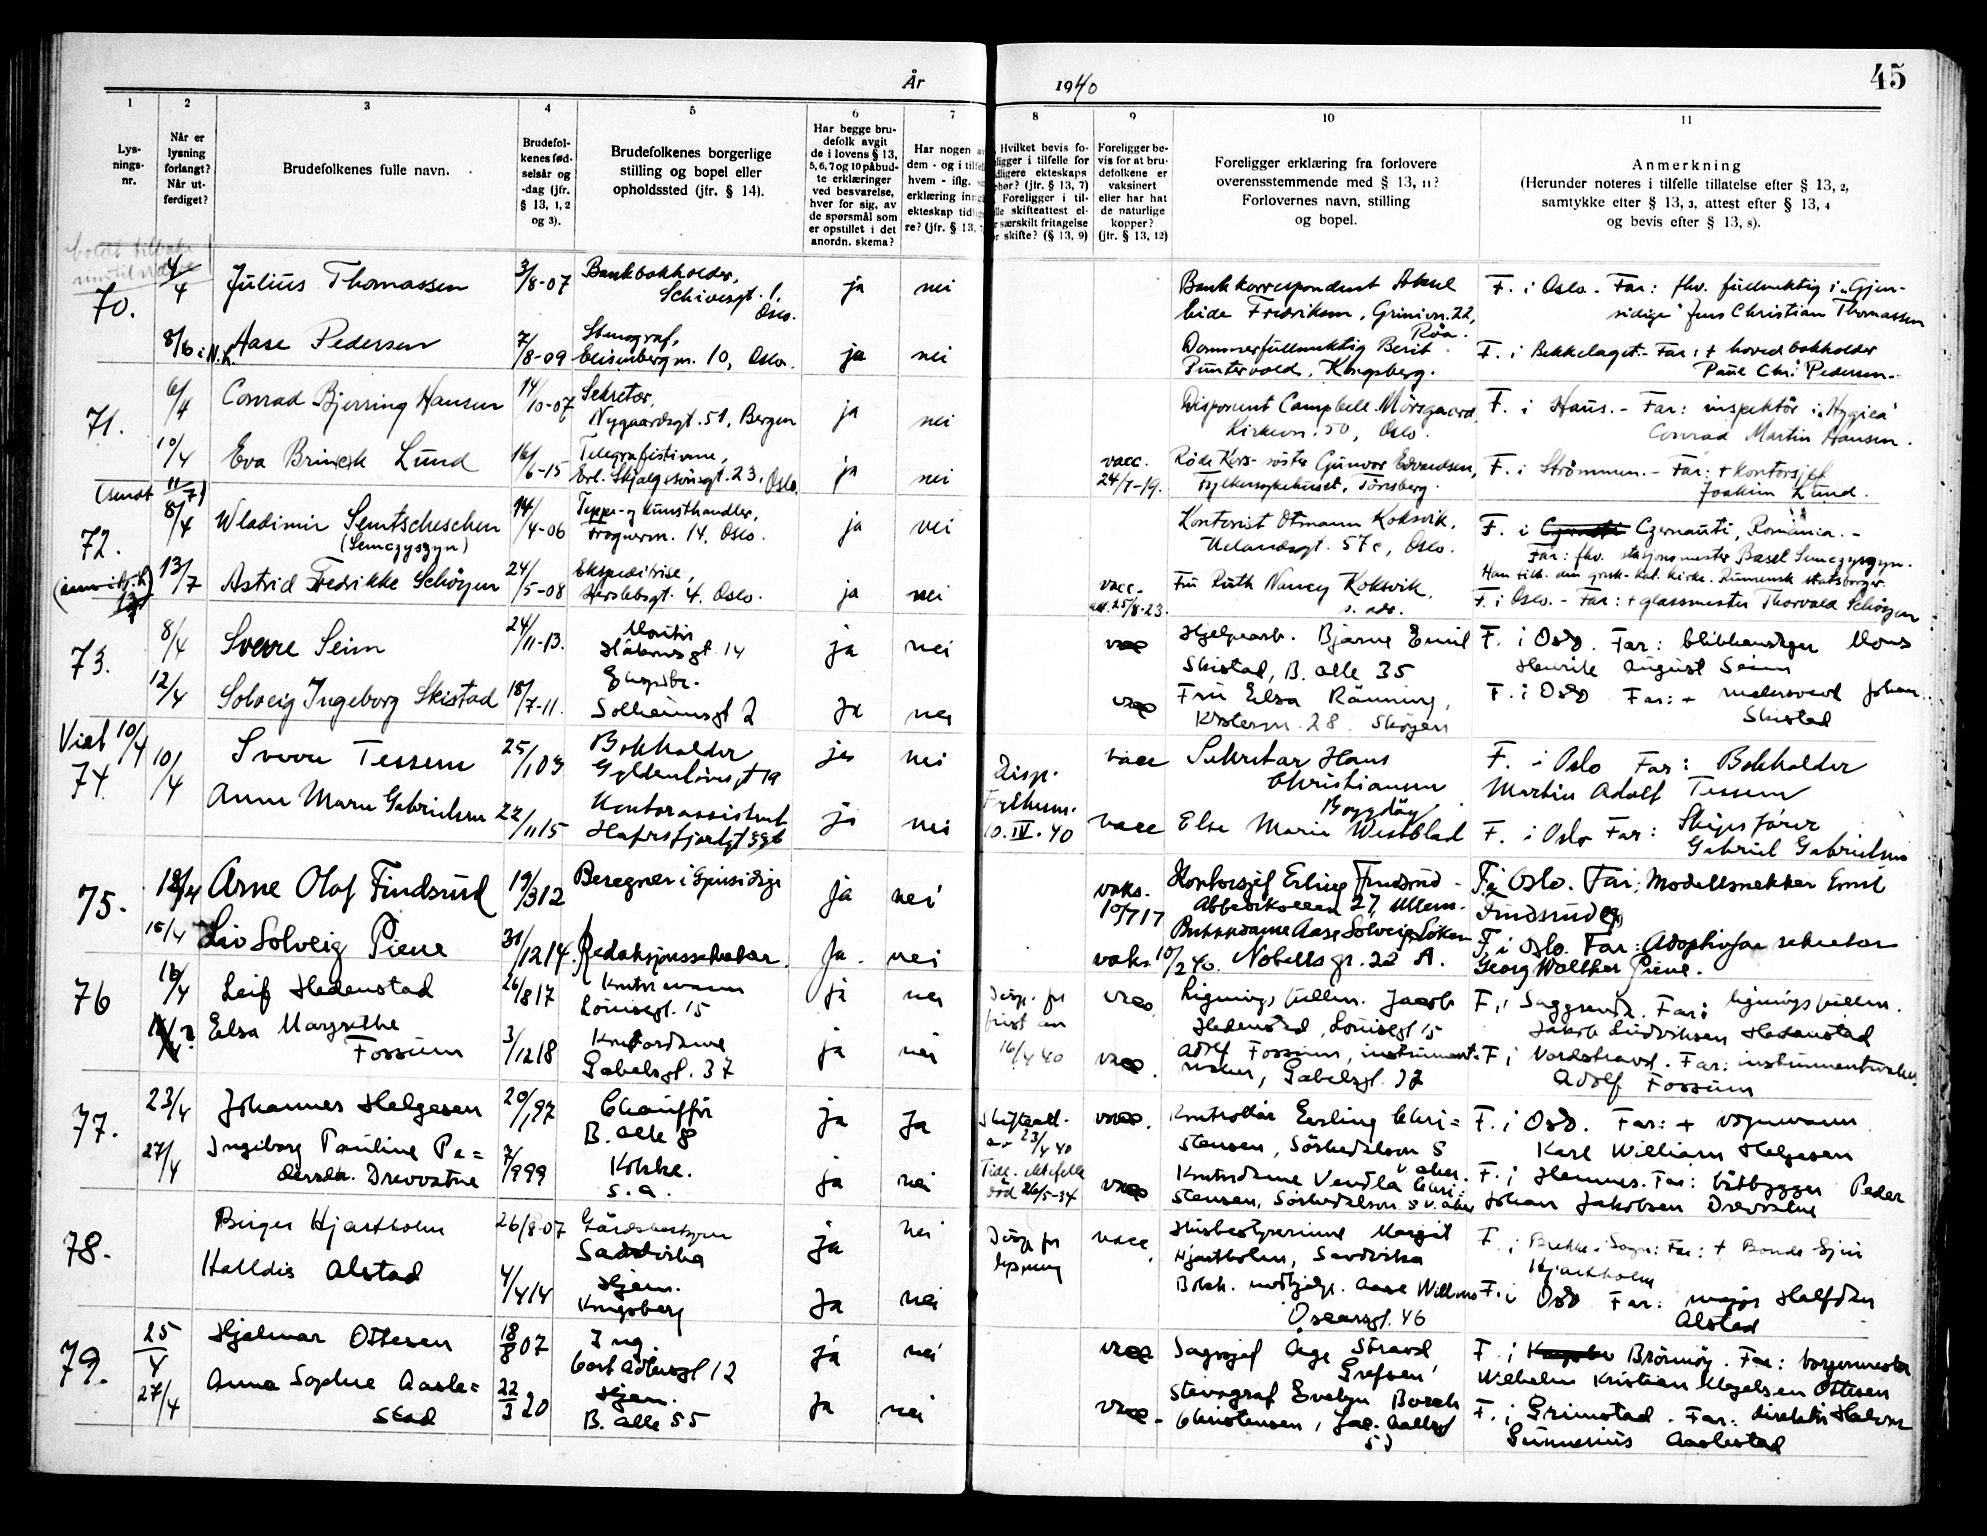 År 1940
45
1 2 3 4 5 6 7 8 9 10 11
Lys-
nings-
nr.
Når er
lysning
forlangt?
Når ut-
ferdiget?
Brudefolkenes fulle navn.
Brudefol-
kenes fød-
selsår og
-dag (jfr.
§ 13, 1, 2
og 3).
Brudefolkenes borgerlige
stilling og bopel eller
opholdssted (jfr. § 14).
Har begge bru-
defolk avgit
de i lovens § 13,
5, 6, 7 og 10 påbud-
te erklæringer
ved besvarelse,
hver for sig, av
de spørsmål som
er opstillet i det
anordn. skema?
Har nogen a
dem - og i tilfel
hvem - iflg.
erklæring inng
ekteskap tidlig
re? (jfr. § 13, 7
Hvilket bevis fo-
ligger i tilfelle for
dligere ekteskaps
phør? (jfr. § 13, 7)
Foreligger i til-
lle skifteattest el-
r særskilt fritagelse
r skifte? (§ 13, 9)
Foreligger be-
vis for at bru-
defolkene er
vaksinert
eller har hat
de naturlige
kopper?
(jfr. § 13, 12)
Foreligger erklæring fra forlovere
overensstemmende med § 13, 11?
Forlovernes navn, stilling
og bopel.
Anmerkning
(Herunder noteres i tilfelle tillatelse efter § 13, 2,
samtykke efter § 13, 3, attest efter § 13, 4
og bevis efter § 13, 8).
70.
4/4
Julius Thomassen
3/8-07
Bankbokholder,
Schivesgt. 1,
Oslo.
ja
nei
Bankkorrespondent Aksel
Eide Fredriksen, Grinivn. 22,
Røa.
F. i Oslo. - Far: fhv. fullmektig i "Gjen-
sidige" Jens Christian Thomassen
8/6 i N.h.
Aase Pedersen
7/8-09
Stenograf,
Eilsenbergvn. 10, Oslo.
ja
nei
Dommerfullmektig Berit
Puntervold, Kongsberg.
F. i Bekkelaget. - Far: + hovedbokholder
Paul Chr. Pedersen.
71.
6/4
Conrad Bjerring Hansen
14/10-07
Sekretær,
Nygaardsgt. 51, Bergen
ja
nei
Disponent Campbell Mörsgaard,
Kirkevn. 50, Oslo.
F. i Haus. - Far: inspektör i "Hygiea"
Conrad Martin Hansen.
10/4
Eva Brinck Lund
16/6-15
Telegrafistinne,
Erl. Skjalgssönsgt. 23, Oslo.
ja
nei
vacc.
24/7-19.
Røde Kors-söster Gunvor Edvardsen,
Fylkessykehuset, Tönsberg.
F. i Strömmen. - Far: + kontorsjef
Joakim Lund.
(sendt 11/7)
72.
8/4
Wladimir Semtscheschen
(Semczyszyn)
14/4-06
Teppe- og kunsthandler,
Frognervn. 14, Oslo.
ja
nei
Kontorist Otmann Koksvik,
Uelandsgt. 57c, Oslo.
F. i Czernauti, România. -
Far: fhv. stasjonsmester Basel Semczyszyn.
Han tilh. den gresk-kat. kirke. Rumensk statsborger.
13/7
Astrid Fredrikke Schöyen
24/5-08
Ekspeditrise,
Herslebsgt. 4. Oslo.
ja
nei
vacc.
25/8-23.
Fru Ruth Nancy Koksvik,
s. adr.
F. i Oslo. - Far: + glassmester Thorvald Schöyen
73.
8/4
Sverre Seim
24/11-13.
Håkonsgt. 14
ja
nei
vacc
Hjelpearb. Bjarne Emil
Skistad, B. alle 35
F. i Oslo. Far: blikkenslager Mons
Henrik August Seim
12/4
Solveig Ingeborg Skistad
18/7-11.
Solheimsgt 2
ja
nei
vacc
Fru Elsa Rånning,
28 Skøyen
F. i Oslo Far: + Johan
Skistad
Viet 10/4
74.
10/4
Sverre Tessem
25/1 09
Bokholder
Gyldenlövesgt 19
ja
nei
vacc
Sekretær Hans
Christiansen
Bygdöy
F. i Oslo Far: Bokholder
Martin Adolf Tessem
Anne Marie Gabrielsen
22/11 15
Kontorassistent
Hafrsfjordgt
ja
nei
Disp.
10.IV.40
vacc
Else Marie Westblad
F. i Oslo Far: Skipsförer
Gabriel Gabrielsen
75.
12/4
Arne Olaf Findsrud
19/3 12
Beregner i Gjensidige
ja
nei
vaks.
10/7 17
Kontorsjef Erling Findsrud -
Abbedikollen 27, Ullern.
F. i Oslo. Far: Modellsnekker Emil
Findsrud
15/4
Liv Solveig Piene
31/12 14.
Redaksjonssekretær.
Ja.
nei
vaks. 10/2 40.
Aase Solveig Löken
Nobels gt. 22 A.
F. i Oslo. Far: Adoptivfar sekretær
Georg Walther Piene.
76
16/4
Leif Hedenstad
26/8 17
Kontormann
Louisesgt. 15
ja
nei
Disp. for
16/4 40
vacc.
Ligningsfullm. Jacob
Hedenstad, Louisegt 15
F. i Saggrenda. Far: ligningsfullm.
Jakob Ludviksen Hedenstad
Elsa Margrethe
Fossum
3/12 18
Kontordame
Gabelsgt. 37
ja
nei
vacc.
Adolf Fossum, instrument-
maker, Gabelsgt. 37
F. i Nordstrand. Far: instrumentmaker
Adolf Fossum
77.
23/4
Johannes Helgesen
20/1 97
Chauffør
B. alle 8
ja
Ja
Skifteatt.
av 23/4 40
vacc.
Kontrollør Erling Chri=
stensen, Sörkedalsvn 5
F. i Oslo. Far: + vognmann
Karl William Helgesen
27/4
Ingeborg Pauline Pe=
dersen Drevvatne
7/9 99
Kokke.
s. a.
ja
nei
død 26/5-34
vacc
Kontordame Vendla Chri=
stensen, Sörkedalsvn. 5 V. aker
F. i Hemnes. Far: båtbygger Peder
Johan Jakobsen Drevvatne
78.
Birger Hjartholm
26/8-07
Gårdsbestyrer
Sandvika
ja
nei
Disp for
lysning
vacc.
Husbestyrerinne Margit
Hjartholm, Sandvika
F. i Brekke i Sogn: Far: + Bonde
Hjartholm
Halldis Alstad
4/4 14
Hjem.
Kongsberg
Ja
nei
Bokh. Aase Willums
Oscarsgt. 46
F. i Oslo Far: major Halfdan
Alstad
79.
25/4
Hjalmar Ottesen
18/8 07
Ing.
Cort Adlersgt 12
ja
nei
vacc
Sagsjef Åge Strand
Grefsen
F. i Brönnöy. Far: borgermester
Wilhelm Kristian Magelsen Ottesen
27/4
Anna Sophie Aasle=
stad
22/3 20
Hjem.
B. alle 55
Ja
nei
vacc.
Stenograf Evelyn Borch
Christensen, Jac. Aallsgt
53
F. i Grimstad. Far: direktør Halvor
Gunnerius Aaslestad